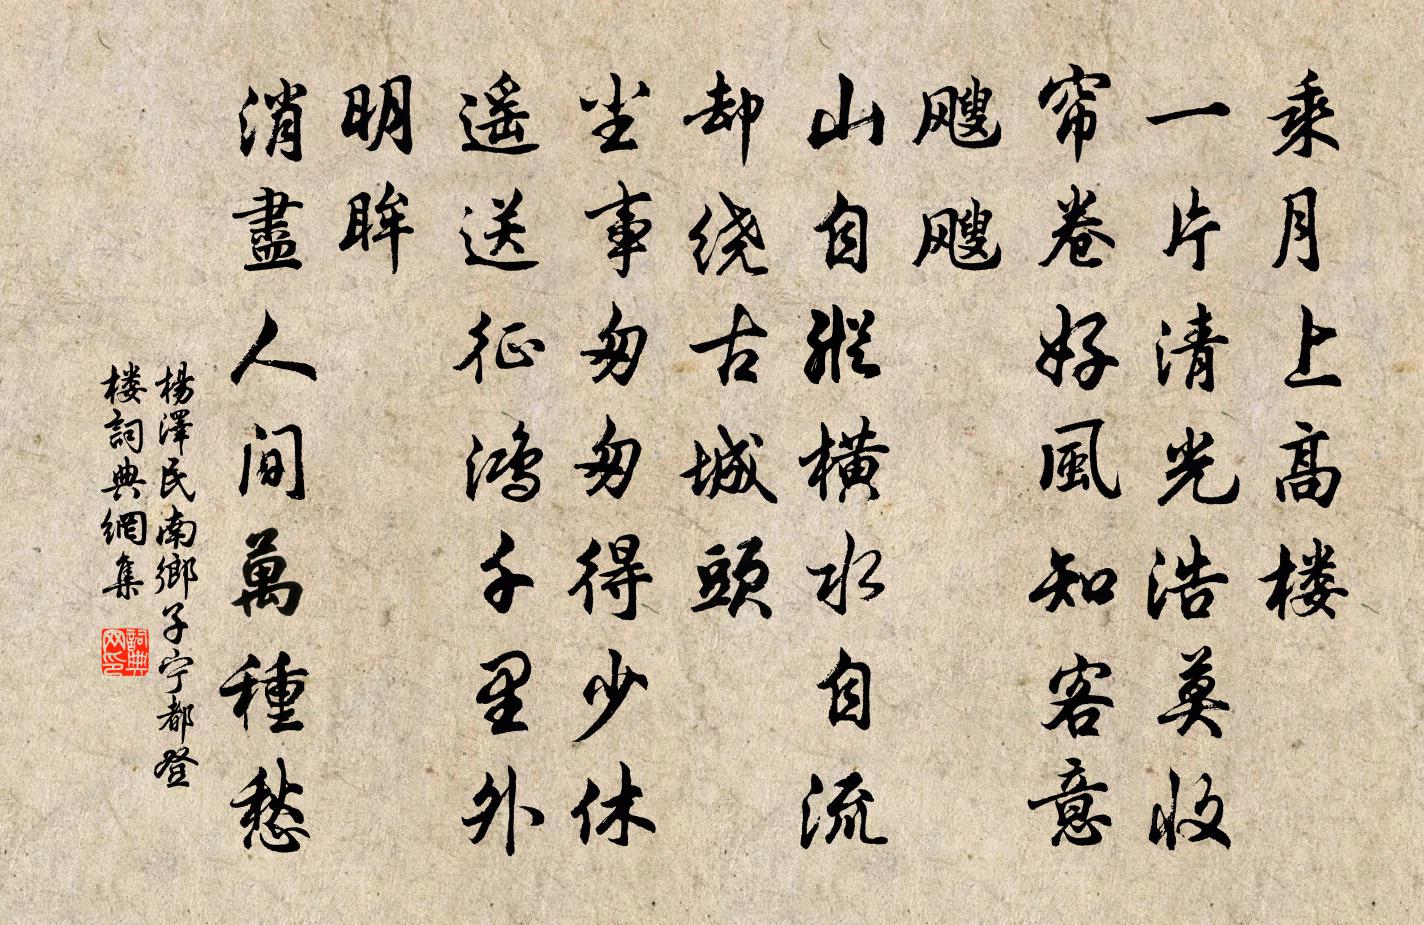 乘月上高楼
一片清光浩莫收
帘卷好風知客意
飕飕
山自縱横水自流
却绕古城頭
尘事匆匆得少休
遥送征鸿千里外
明眸
消盡人间萬種愁
楊澤民南鄉子宁都登
楼詞典網集
詞典
网印